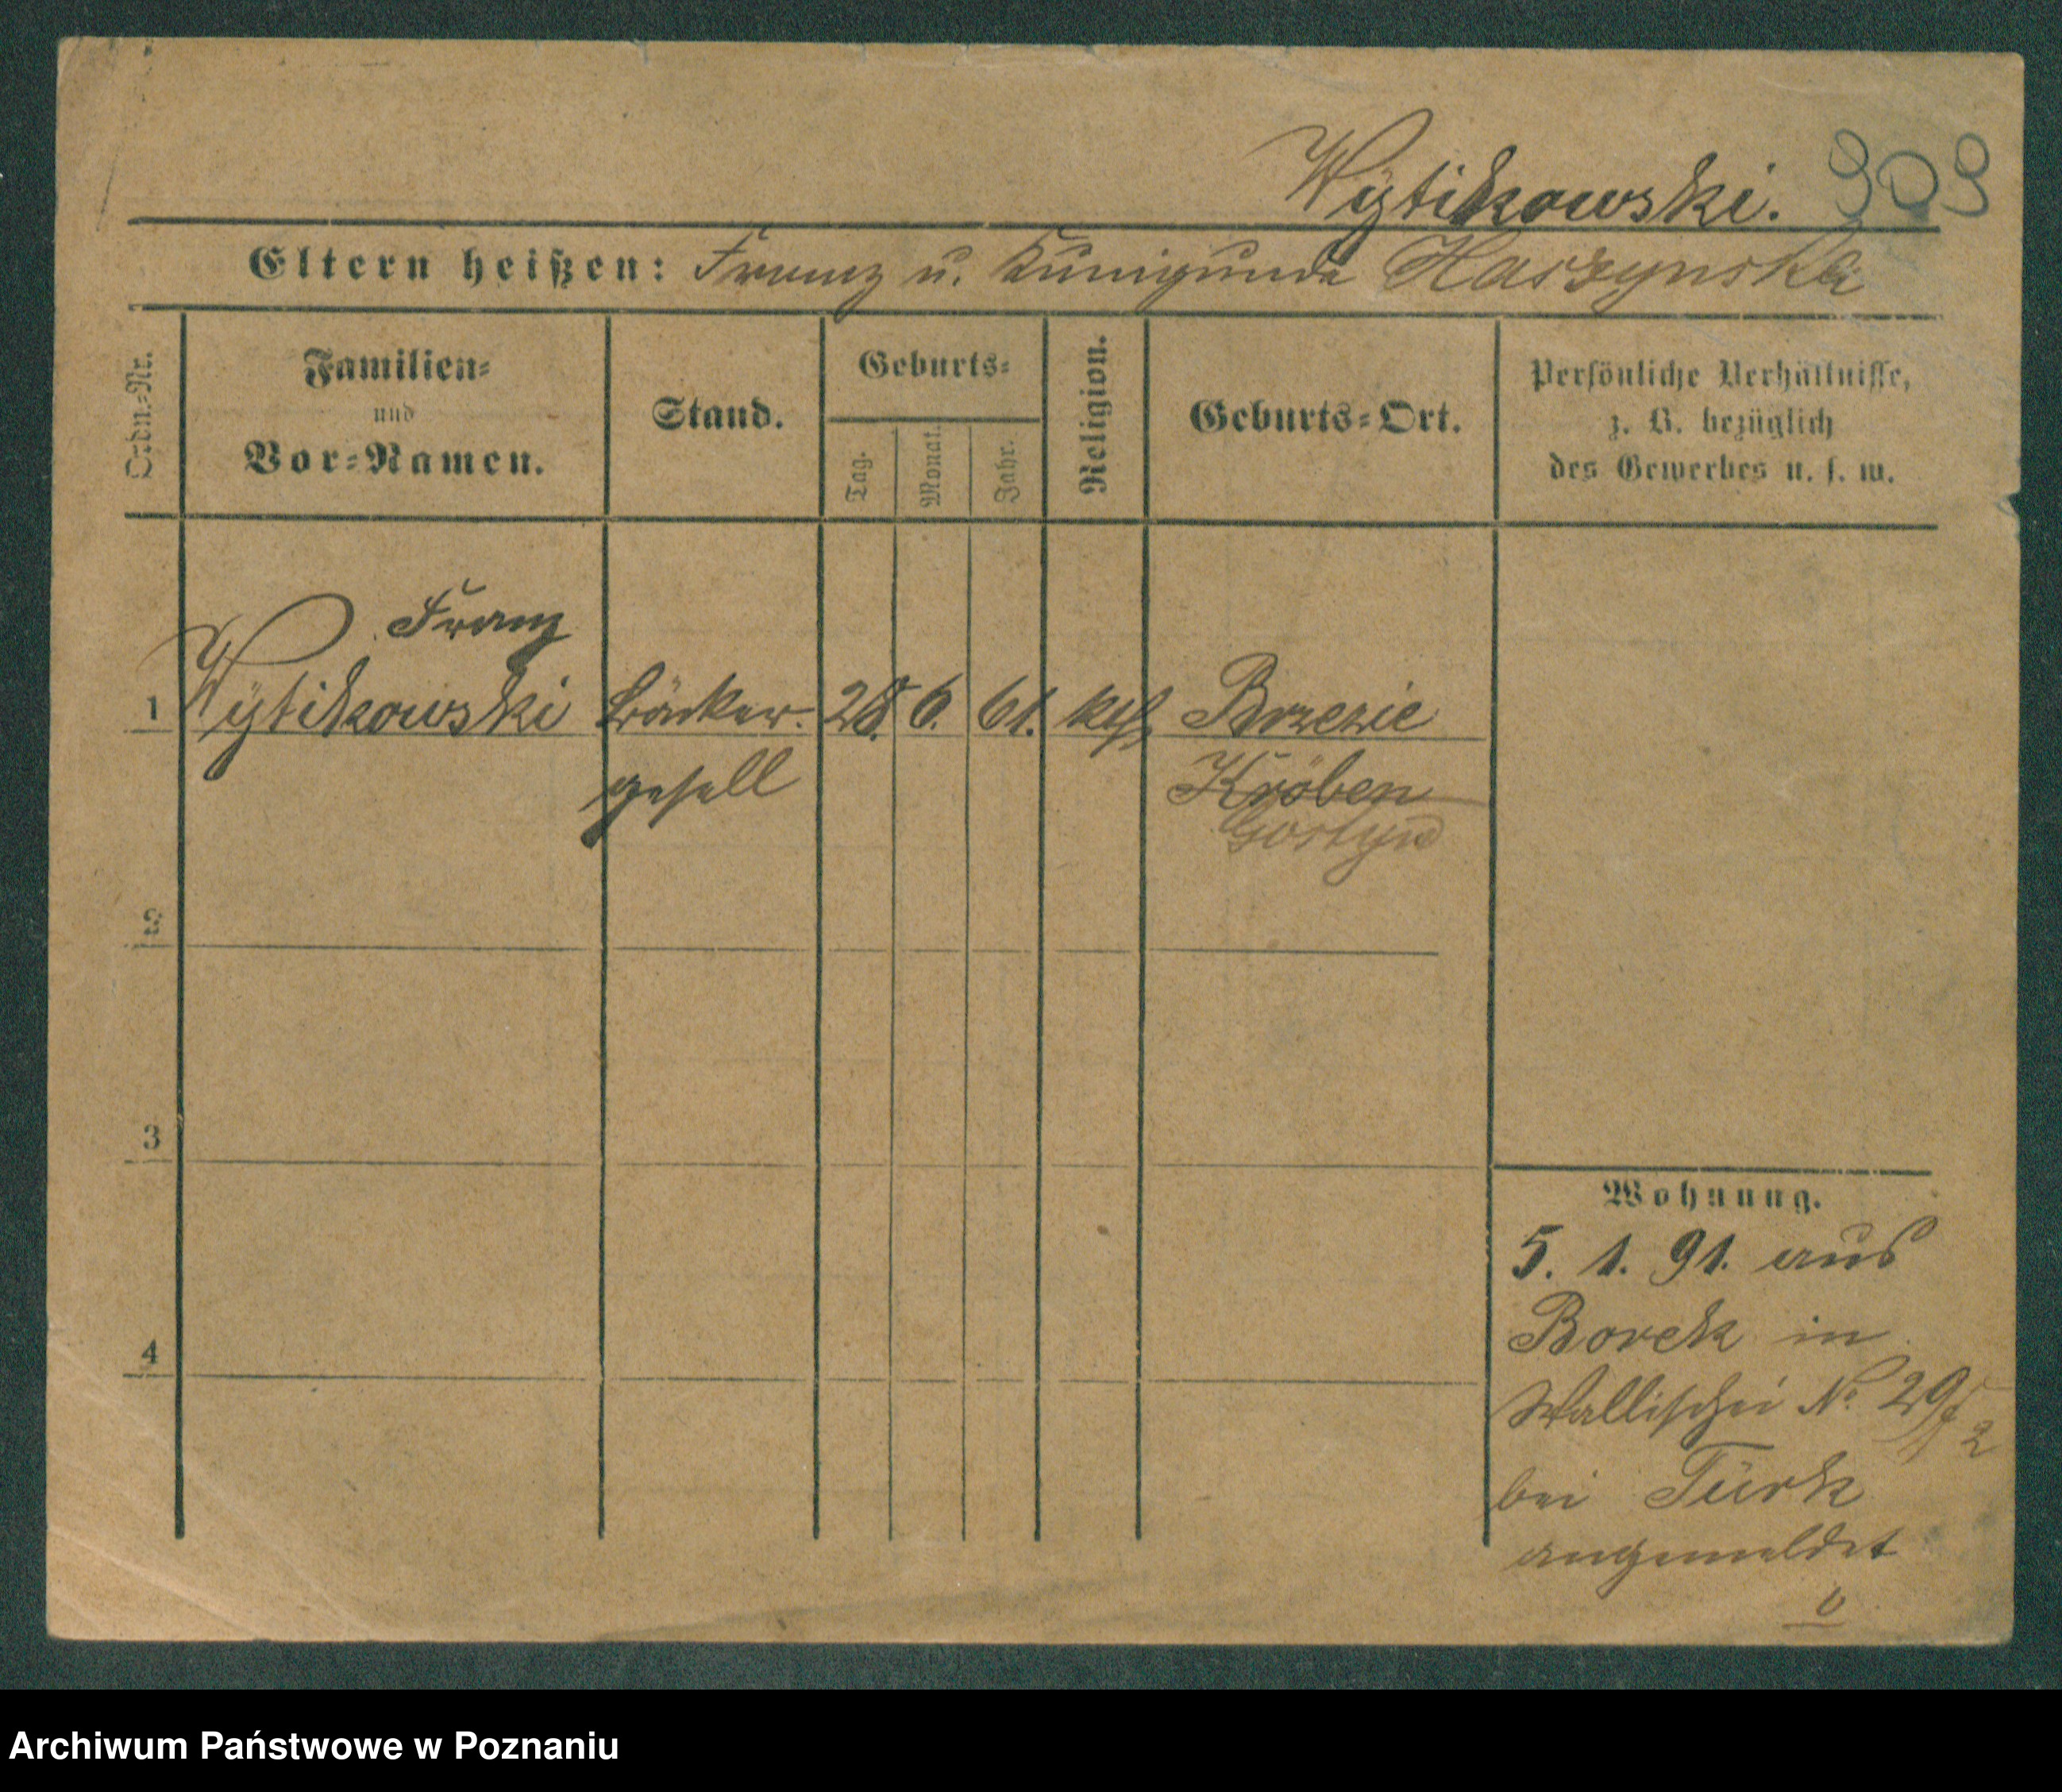 Wytikowski. 909
Eltern heißen: Franz u. Kunigunda Haszynska
Ordn.-Nr.
Familien-
und
Vor-Namen.
Stand.
Geburts-
Tag.
Monat.
Jahr.
Religion.
Geburts-Ort.
Persönliche Verhältnisse,
z. B. bezüglich
des Gewerbes u. s. w.
Franz
1 Wytikowski Bäcker- 28. 6. 61. kath Brzezie
gesell Kröben
Gostyn
2
3
4
Wohnung.
5. 1. 91. aus
Borek in
Wallischei No. 29/
2
bei Türk
angemeldet
Archiwum Państwowe w Poznaniu